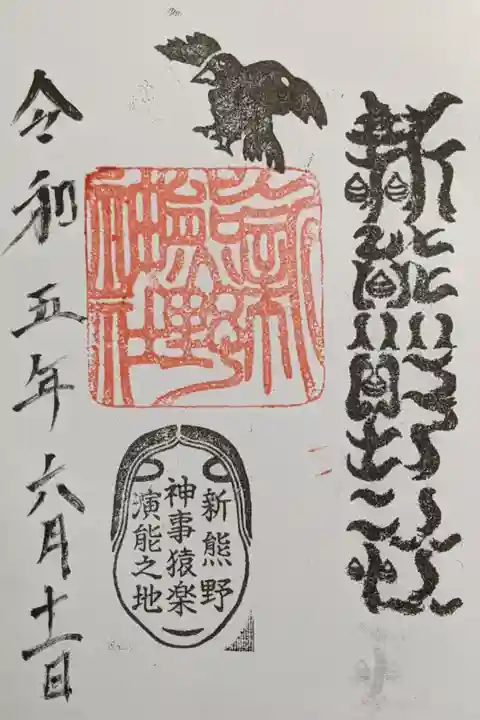 新熊野神社
新熊野神社
新熊野
神事猿楽
演能之地
令和五年六月十一日